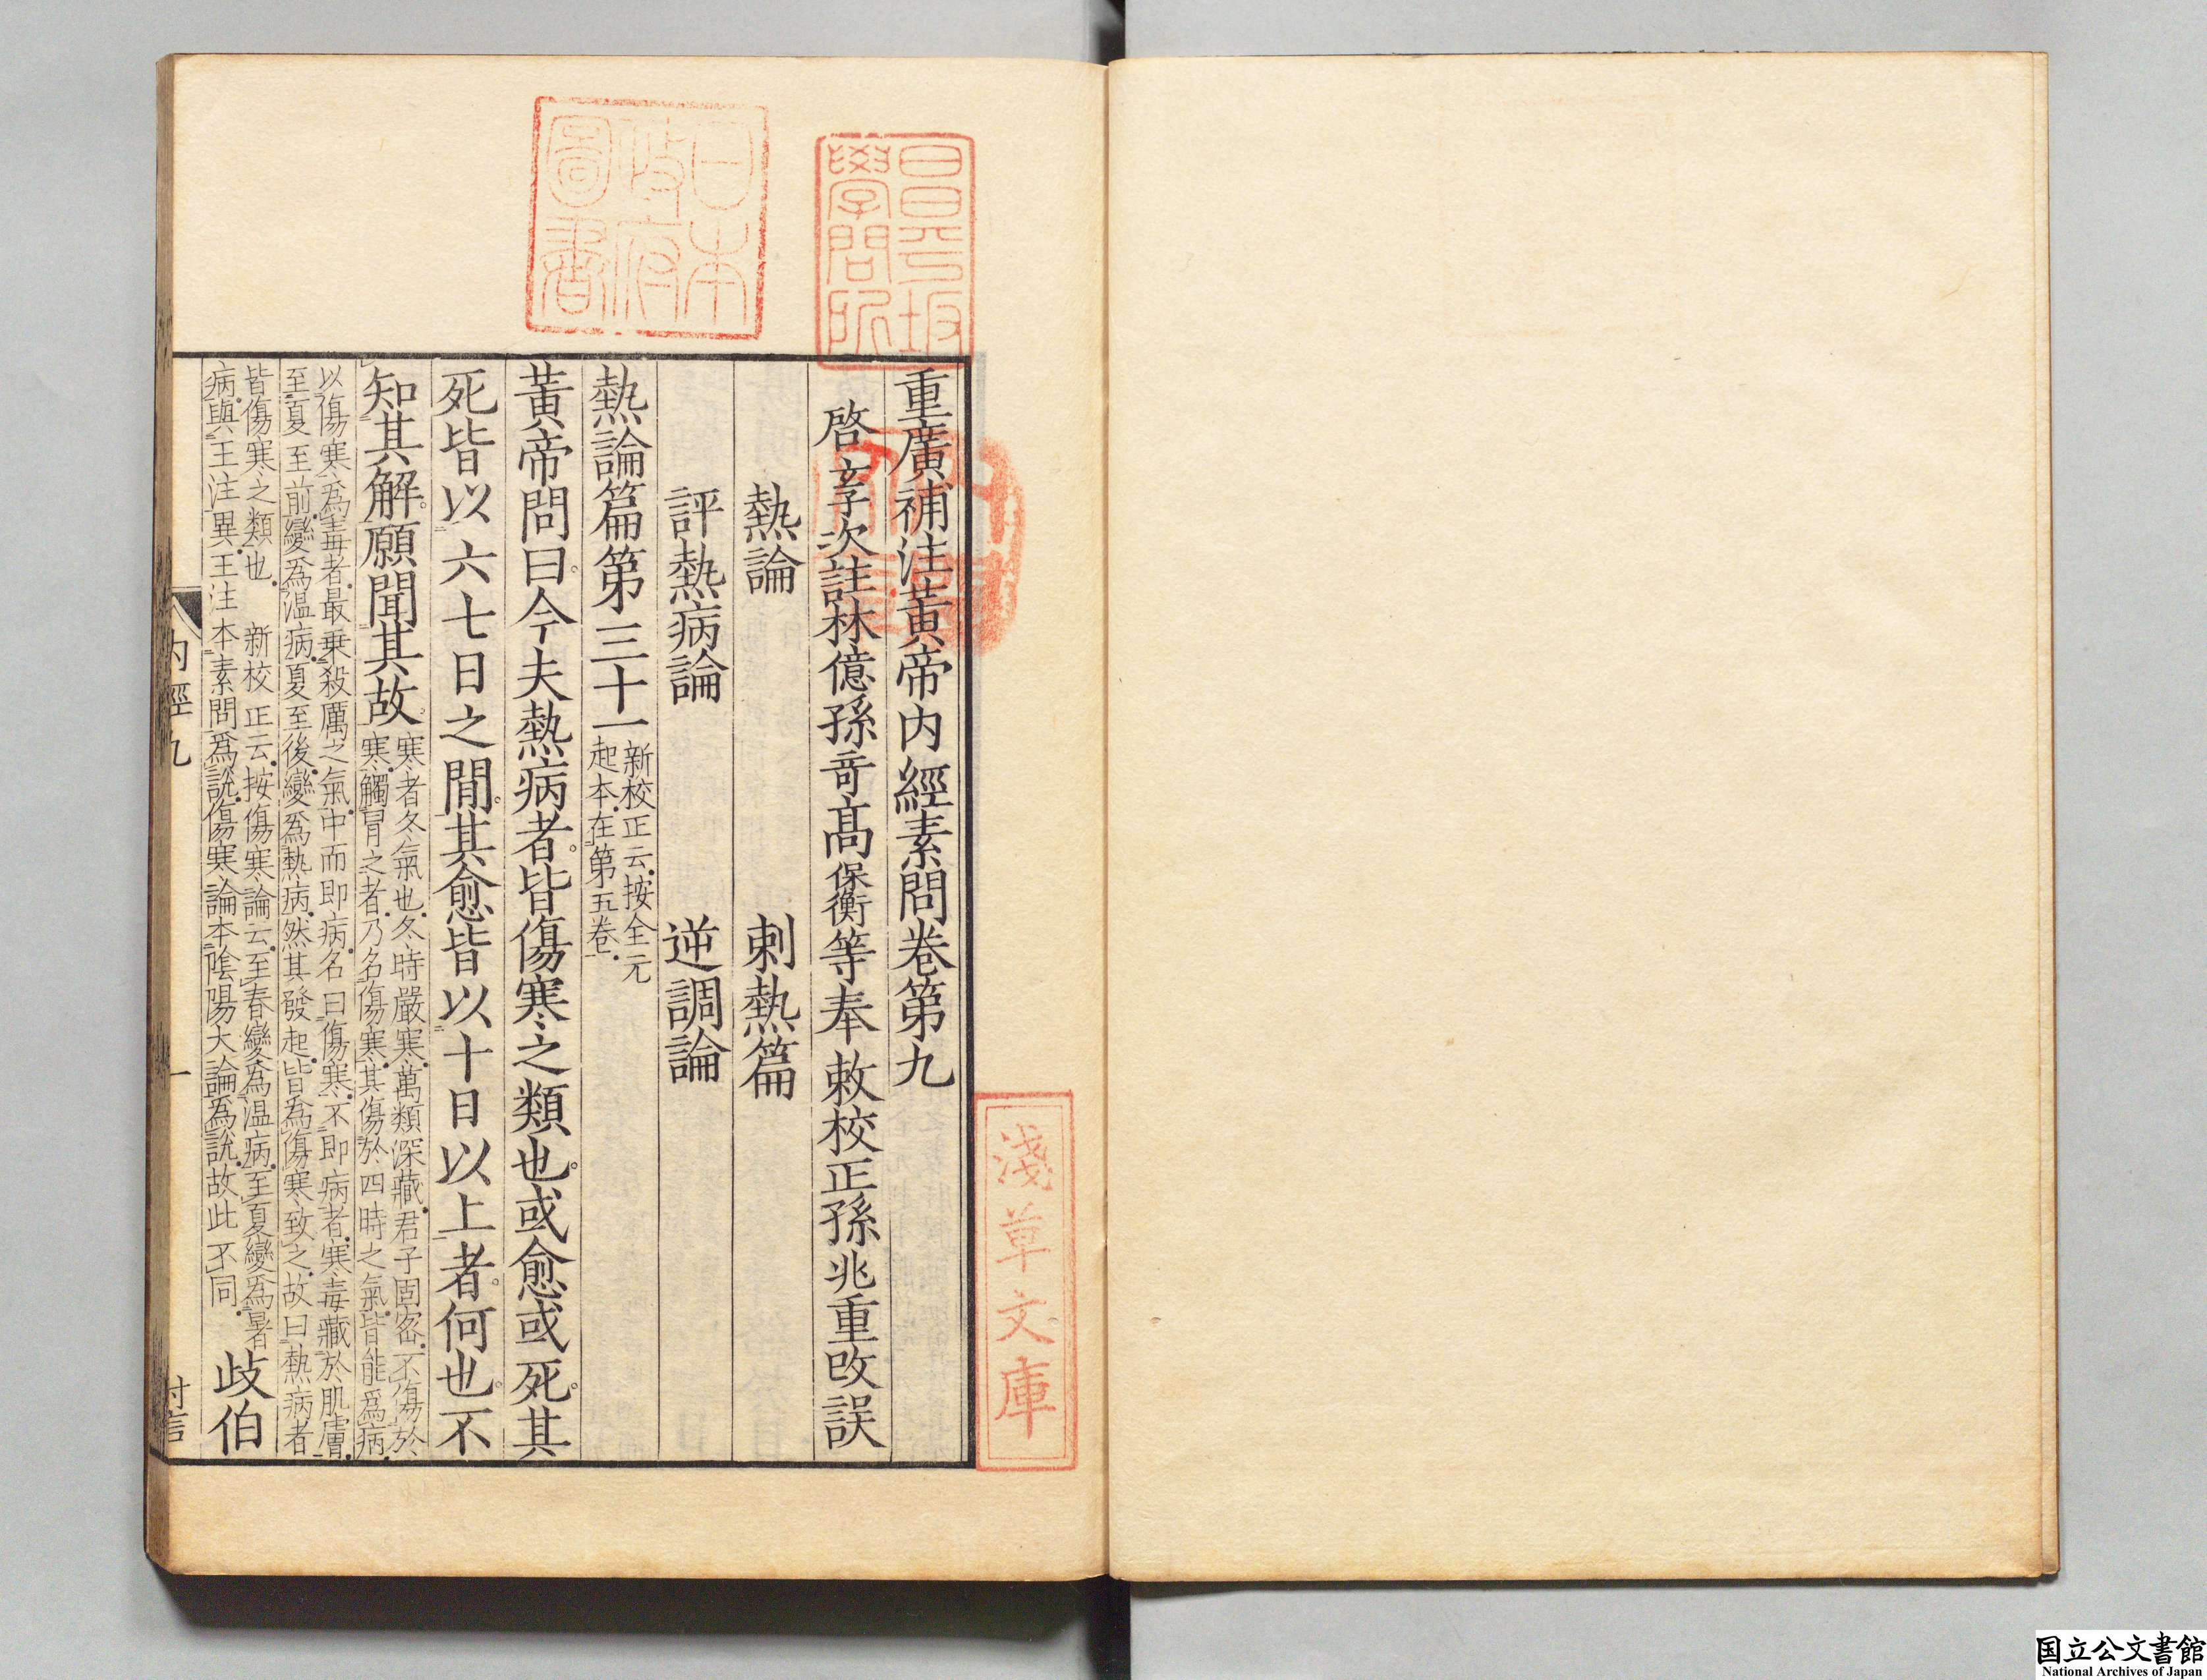 重廣補注黃帝內經素問卷第九
啓玄子次註林億孫竒髙保衡等奉敕校正孫兆重改誤
熱論　刺熱篇
評熱病論　逆調論
熱論篇第三十一新校正云按全元
起本在第五卷
黃帝問曰今夫熱病者皆傷寒之類也或愈或死其
死皆以六七日之間其愈皆以十日以上者何也不
知其解願聞其故寒者冬氣也冬時嚴寒萬類深藏君子固密不傷於
寒觸冒之者乃名傷寒其傷於四時之氣皆能爲病
以傷寒爲毒者最乗殺厲之氣中而即病名曰傷寒不即病者寒毒藏於肌膚
至夏至前變爲温病夏至後變爲熱病然其發起皆爲傷寒致之故曰熱病者
皆傷寒之類也　新校正云按傷寒論云至春變爲温病至夏變爲暑
病與王注異王注本素問爲說傷寒論本隂陽大論爲說故此不同　歧伯
內經九　一
昌平坂
學問所
日本
政府
圖書
淺草文庫
国立公文書館
National Archives of Japan